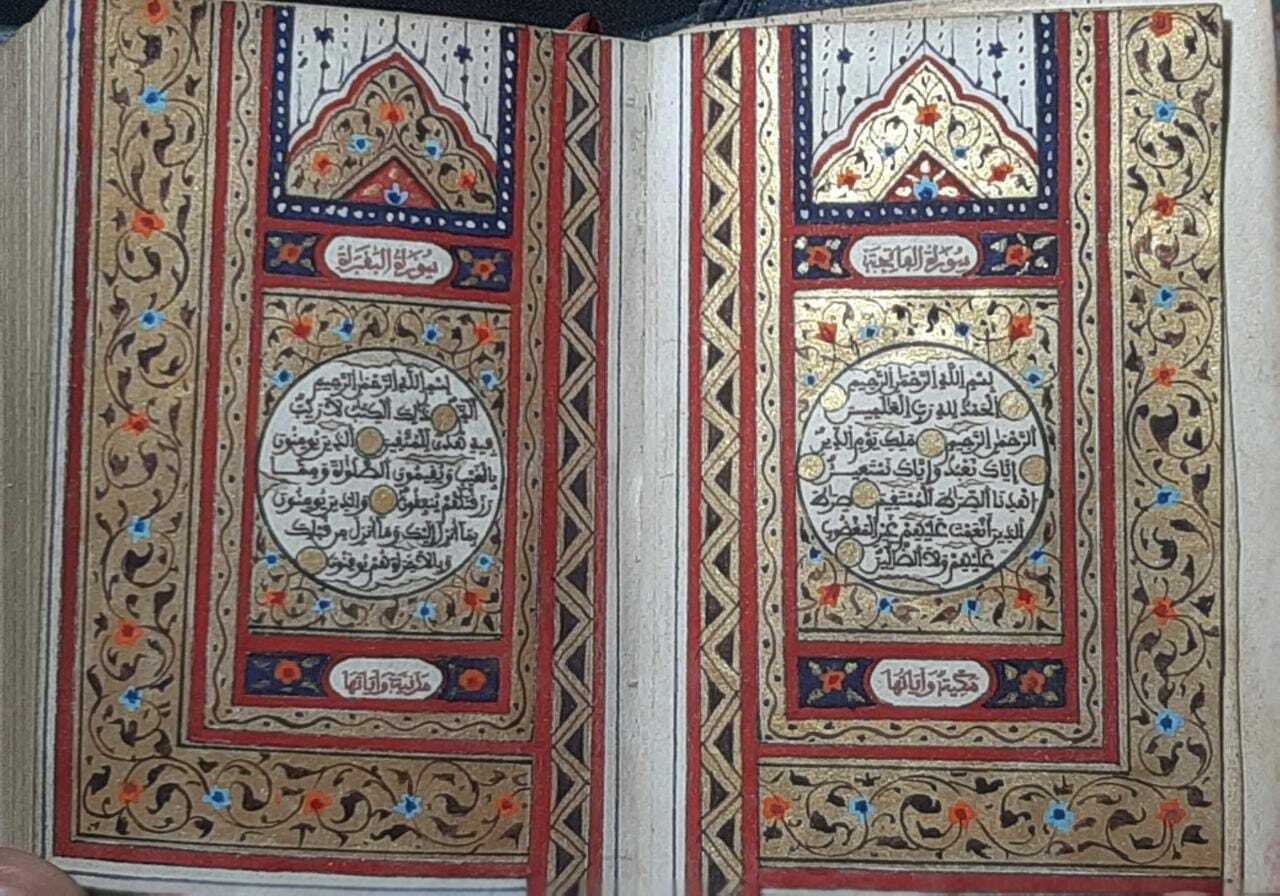 سُورَةُ الْفَاتِحَةِ
بِسْمِ اللَّهِ الرَّحْمَٰنِ الرَّحِيمِ
الْحَمْدُ لِلهِ رَبِّ الْعَٰلَمِينَ
الرَّحْمَٰنِ الرَّحِيمِ مَلِكِ يَوْمِ الدِّينِ
إِيَّاكَ نَعْبُدُ وَإِيَّاكَ نَسْتَعِينُ
اهْدِنَا الصِّرَٰطَ الْمُسْتَقِيمَ صِرَٰطَ
الَّذِينَ أَنْعَمْتَ عَلَيْهِمْ غَيْرِ الْمَغْضُوبِ
عَلَيْهِمْ وَلَا الضَّالِّينَ
مَكِّيَّة وَآيَاتُهَا
سُورَةُ الْبَقَرَةِ
بِسْمِ اللَّهِ الرَّحْمَٰنِ الرَّحِيمِ
الٓمٓ ذَٰلِكَ الْكِتَٰبُ لَا رَيْبَ
فِيهِ هُدًى لِّلْمُتَّقِينَ الَّذِينَ يُومِنُونَ
بِالْغَيْبِ وَيُقِيمُونَ الصَّلَوٰةَ وَمِمَّا
رَزَقْنَٰهُمْ يُنفِقُونَ وَالَّذِينَ يُومِنُونَ
بِمَا أُنزِلَ إِلَيْكَ وَمَا أُنزِلَ مِن قَبْلِكَ
وَبِالْآخِرَةِ هُمْ يُوقِنُونَ
مَدَنِيَّة وَآيَاتُهَا